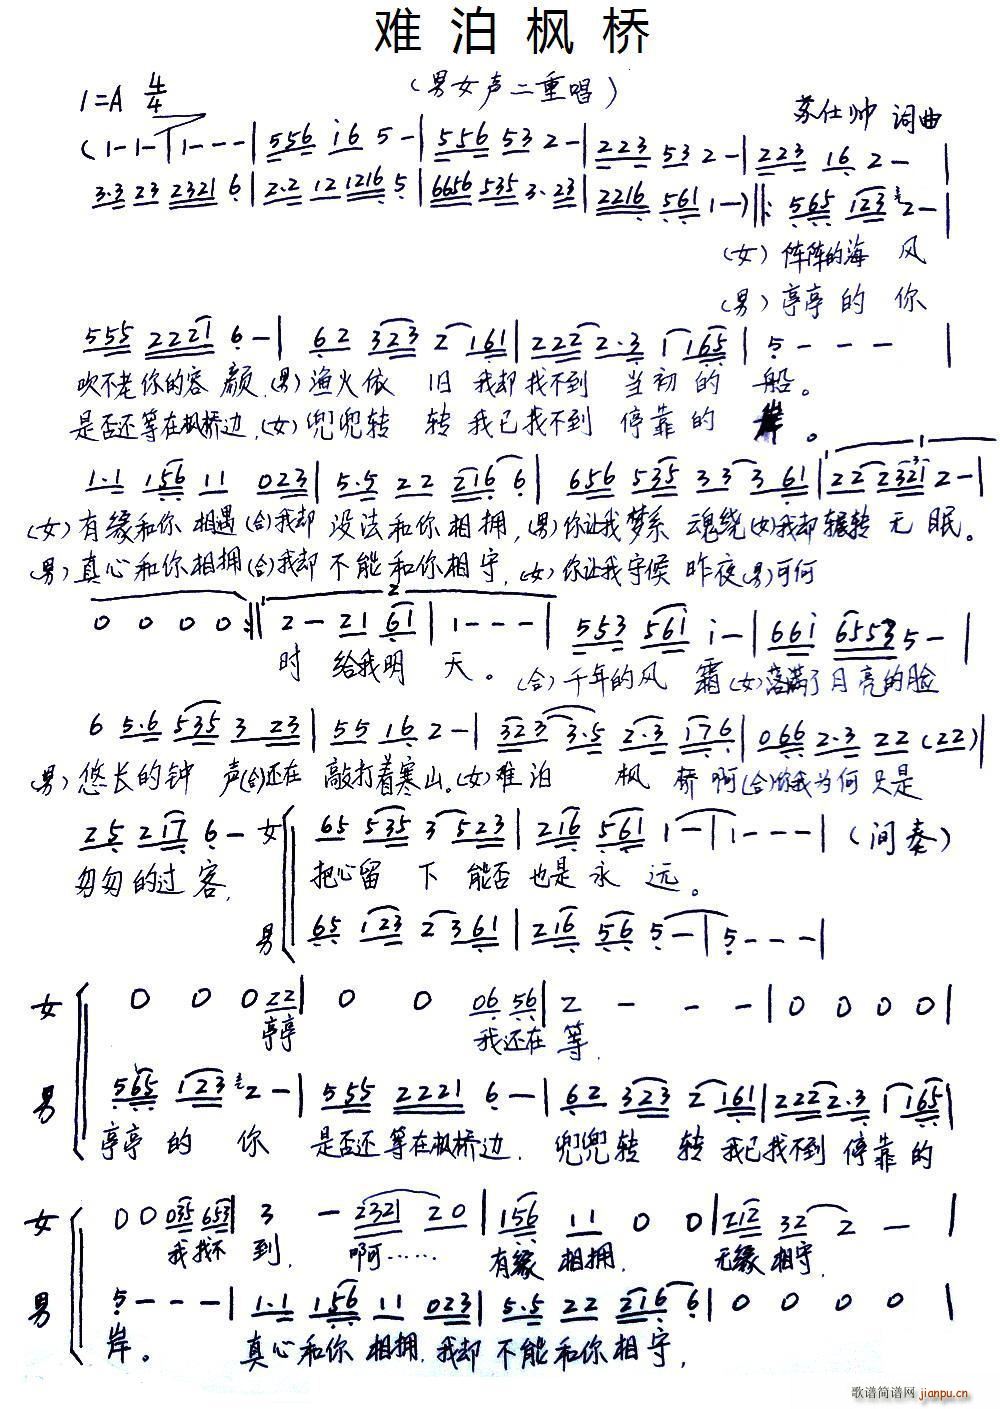 难泊枫桥
(男女声二重唱)
1=A 4/4
苏仕帅 词曲
(1-1-|1---|556 i6 5-|556 53 2-|223 53 2-|223 16 2-|
3·3 23 2321 6|2·2 12 1216 5|6656 535 3·23|2216 561 1-)‖:565 123 2-|
(女)阵阵的海 风
(男)亭亭的 你
555 2221 6-|62 323 2 161|222 2·3 1 165|5---|
吹不老你的容颜.(男)渔火依 旧 我却找不到 当初的 船。
是否还等在枫桥边.(女)兜兜转 转 我已找不到 停靠的 岸。
1·1 156 11 023|5·5 22 216 6|656 535 33 3 61|22 2321 2-|
(女)有缘和你 相遇(合)我却 没法和你相拥,(男)你让我梦系 魂绕(女)我却辗转 无眠。
(男)真心和你相拥(合)我却 不能和你相守.(女)你让我守候 昨夜(男)可何
0 0 0 0:‖2-21 61|1---|553 561 i-|66i 6553 5-|
时 给我明 天。(合)千年的风 霜(女)落满了月亮的脸
6 5·6 535 3 23|55 16 2-|323 3·5 2·3 176|066 2·3 22 (22)|
(男)悠长的钟 声(合)还在 敲打着寒山.(女)难泊 枫 桥啊(合)你我为何只是
25 217 6- 女 65 535 3 523|216 561 1-|1---|(间奏)
匆匆的过 客, 把心留 下 能否 也是永 远。
男 65 123 2 361|216 56 5-|5---|
女 0 0 0 22|0 0 06 56|2 - - -|0 0 0 0|
亭亭 我还在 等.
男 565 123 2-|555 2221 6-|62 323 2 161|222 2·3 1 165|
亭亭的 你 是否还等在枫桥边. 兜兜转 转 我已找不到 停靠的
女 00 035 653|3 - 2321 20|156 11 0 0|212 32 2 -|
我找不 到, 啊…… 有缘 相拥. 无缘 相守.
男 5---|1·1 156 11 023|5·5 22 216 6|0 0 0 0|
岸。 真心和你 相拥.我却 不能和你相守,
歌谱简谱网 jianpu.cn